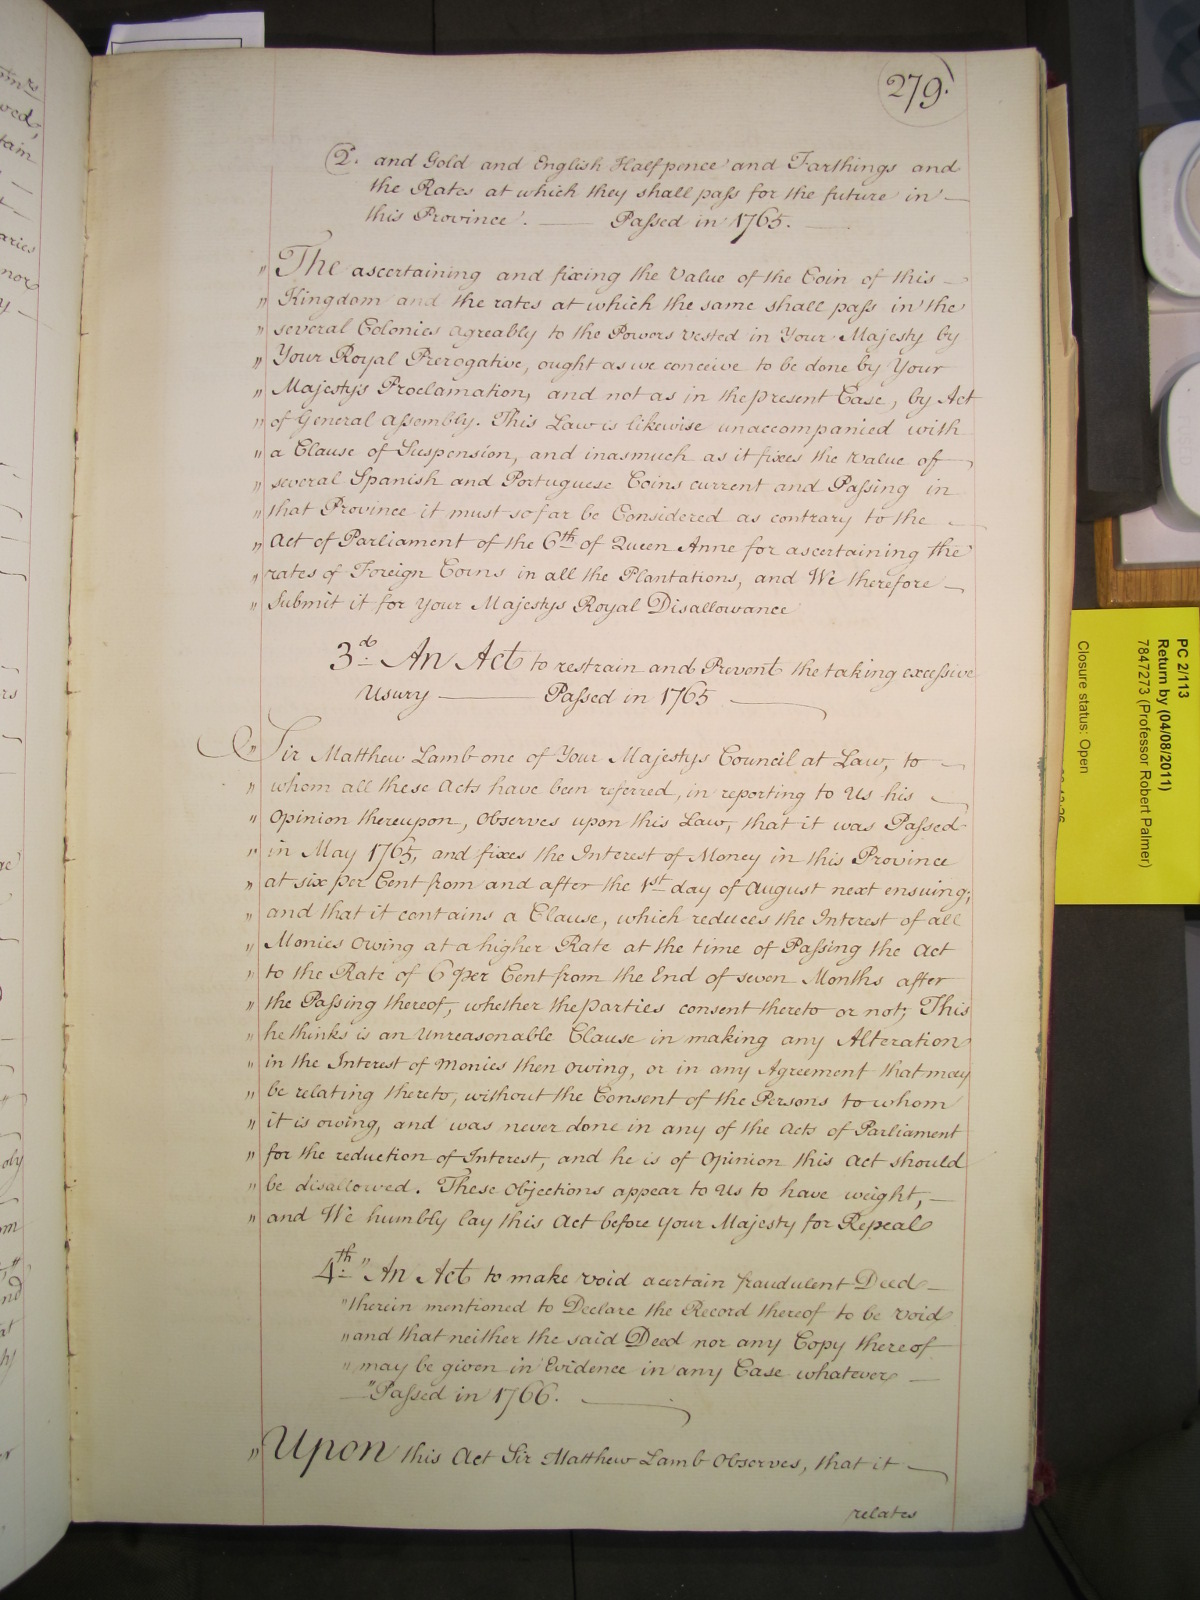 279.
2. and Gold and English Halfpence and Farthings and
the Rates at which they shall pass for the future in —
this Province. —— Passed in 1765. ——
" The ascertaining and fixing the Value of the Coin of this —
" Kingdom and the rates at which the same shall pass in the
" several Colonies agreably to the Powers vested in Your Majesty by
" Your Royal Prerogative, ought as we conceive to be done by Your
" Majestys Proclamation, and not as in the present Case, by Act
" of General Assembly. This Law is likewise unaccompanied with
" a Clause of Suspension, and inasmuch as it fixes the value of —
" several Spanish and Portuguese Coins current and Passing in
" that Province it must so far be Considered as contrary to the —
" Act of Parliament of the 6th of Queen Anne for ascertaining the
" rates of Foreign Coins in all the Plantations, and We therefore —
" Submit it for Your Majestys Royal Disallowance
3d. An Act to restrain and Prevent the taking excessive
Usury —— Passed in 1765 ——
" Sir Matthew Lamb one of Your Majestys Council at Law, to —
" whom all these Acts have been referred, in reporting to Us his —
" Opinion thereupon, Observes upon this Law, that it was Passed
" in May 1765, and fixes the Interest of Money in this Province
" at six per Cent from and after the 1st day of August next ensuing;
" and that it contains a Clause, which reduces the Interest of all
" Monies owing at a higher Rate at the time of Passing the Act
" to the Rate of 6 per Cent from the End of seven Months after
" the Passing thereof, whether the parties consent thereto or not; This
" he thinks is an Unreasonable Clause in making any Alteration
" in the Interest of Monies then owing, or in any Agreement that may
" be relating thereto, without the Consent of the Persons to whom
" it is owing, and was never done in any of the Acts of Parliament
" for the reduction of Interest, and he is of Opinion this Act should
" be disallowed. These Objections appear to Us to have weight, —
" and We humbly lay this Act before your Majesty for Repeal
4th. " An Act to make void a certain fraudulent Deed —
" therein mentioned to Declare the Record thereof to be void
" and that neither the said Deed nor any Copy thereof
" may be given in Evidence in any Case whatever —
— " Passed in 1766. ——
" Upon this Act Sir Matthew Lamb Observes, that it —
relates
PC 2/113
Return by (04/08/2011)
7847273 (Professor Robert Palmer)
Closure status: Open